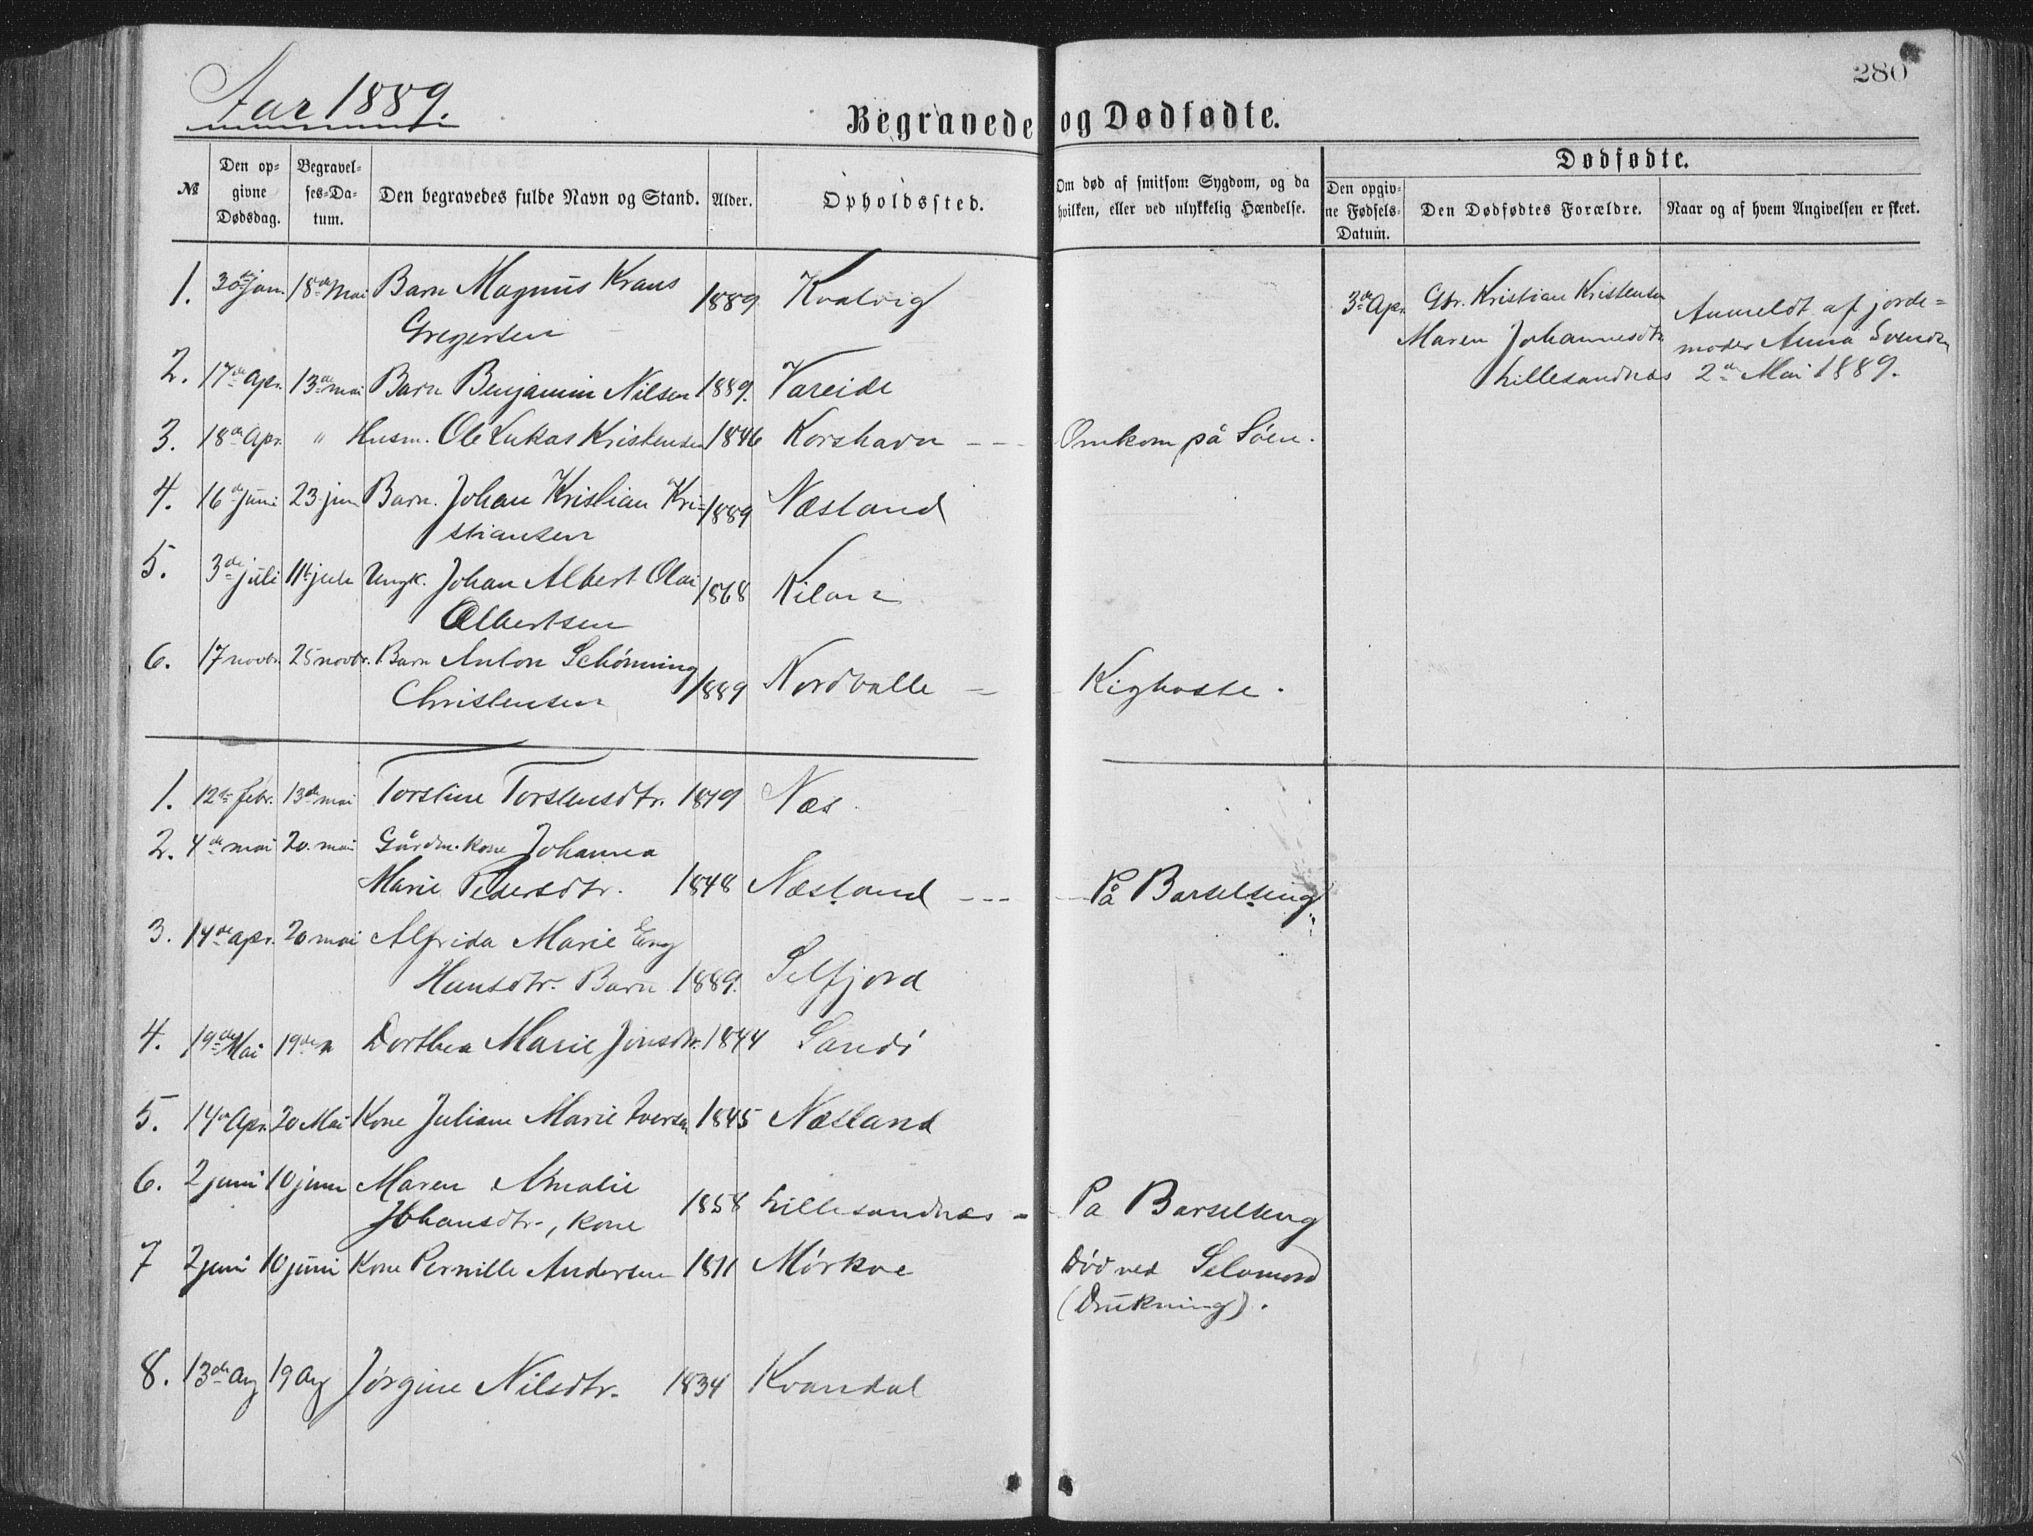 Aar 1889.
280
Begravede og Dødfødte.
№
Den op-
givne
Dødsdag.
Begravel-
ses-Da-
tum.
Den begravedes fulde Navn og Stand.
Alder.
Opholdssted.
Om død af smitsom Sygdom, og da
hvilken, eller ved ulykkelig Hændelse.
Dødfødte.
Den opgiv-
ne Fødsels-
Datum.
Den Dødfødtes Forældre.
Naar og af hvem Angivelsen er skeet.
1. 30te jan. 18de Mai Barn Magnus Kraus 1889. Kvalvig
Gregersen
3de Apr. Gbr. Kristian Kristensen
Maren Johannesdtr.
Lillesandnæs
Anmeldt af jorde-
moder Anna Svends.
2de Mai 1889.
2. 17de Apr. 13de mai Barn Benjamin Nilsen 1889. Vareide
3. 18de Apr. " Husm. Ole Lukas Kristensen 1846 Korshavn - - Omkom på Söen.
4. 16de juni 23 jun Barn. Johan Kristian Kri- 1889 Næsland
stiansen
5. 3de juli 11te juli Ungk. Johan Albert Olai 1868
Albertsen
6. 17 novbr. 25 novbr. Barn Anton Schönning 1889 Nordvalle - - Kighoste.
Christensen
1. 12te febr. 13de mai Torstine Torstensdtr. 1819 Næs
2. 4de mai 20. mai Gårdm. kone Johanna
Marie Pedersdtr. 1848 Næsland - - - På Barselseng
3. 14de apr. 20 mai Alfrida Marie Eng
Hansdtr. Barn 1889. Selfjord
4. 19de Mai 19de " Dorthea Marie Jonsdtr. 1844 Sandö
5. 14de Apr. 20 Mai Kone Juliane Marie Iversen 1845 Næsland
6. 2 juni 10 juni Maren Amalie
Johansdtr., kone 1858 Lillesandnæs - - Pa Barselseng
7 2 juni 10 juni Kone Pernille Andersen 1811 Mørkve Død ved Selvmord
(Drukning).
8. 13de Aug 19 Aug Jørgine Nilsdtr. 1834 Kvandal